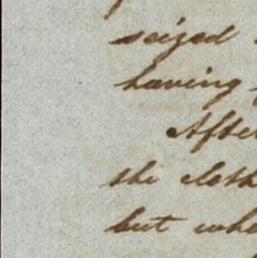 seized
having
After
the cloth
but whe